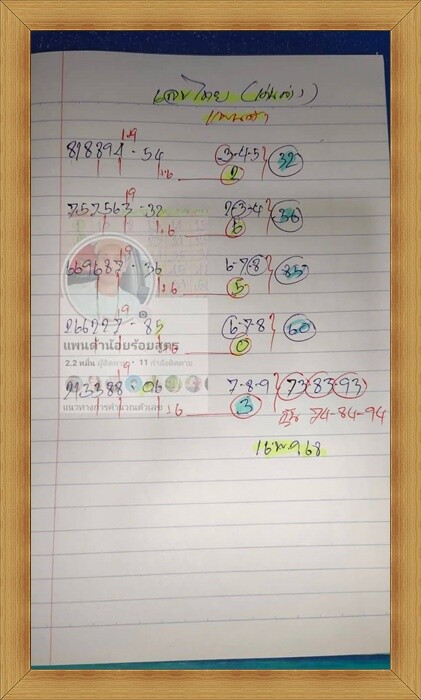 เลขไทย (เด่นล่าง)
แพนด้า
19
818894 - 54 3-4-5 32
1.6 2
19
757563 - 32 2-3-4 36
1.6 6
19
669687 - 36 6-7-8 85
1.6 5
19
266227 - 85 6-7-8 60
แพนด้าน้อยร้อยสูตร
1.6 0
2.2 หมื่น ผู้ติดตาม • 11 กำลังติดตาม
19
943388 - 06 7-8-9 73-83-93
แนวทางการคำนวณตัวเลข
1.6 3 74-84-94
16 พ.ย. 68